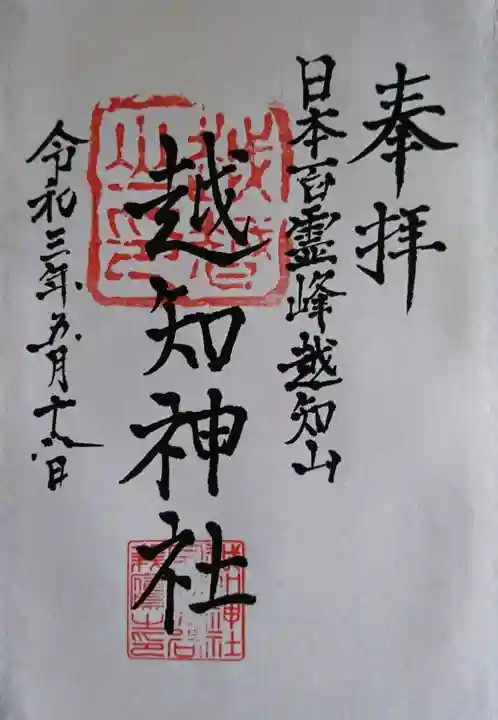 奉拝
日本百霊峰越知山
越知神社
令和三年五月十六日